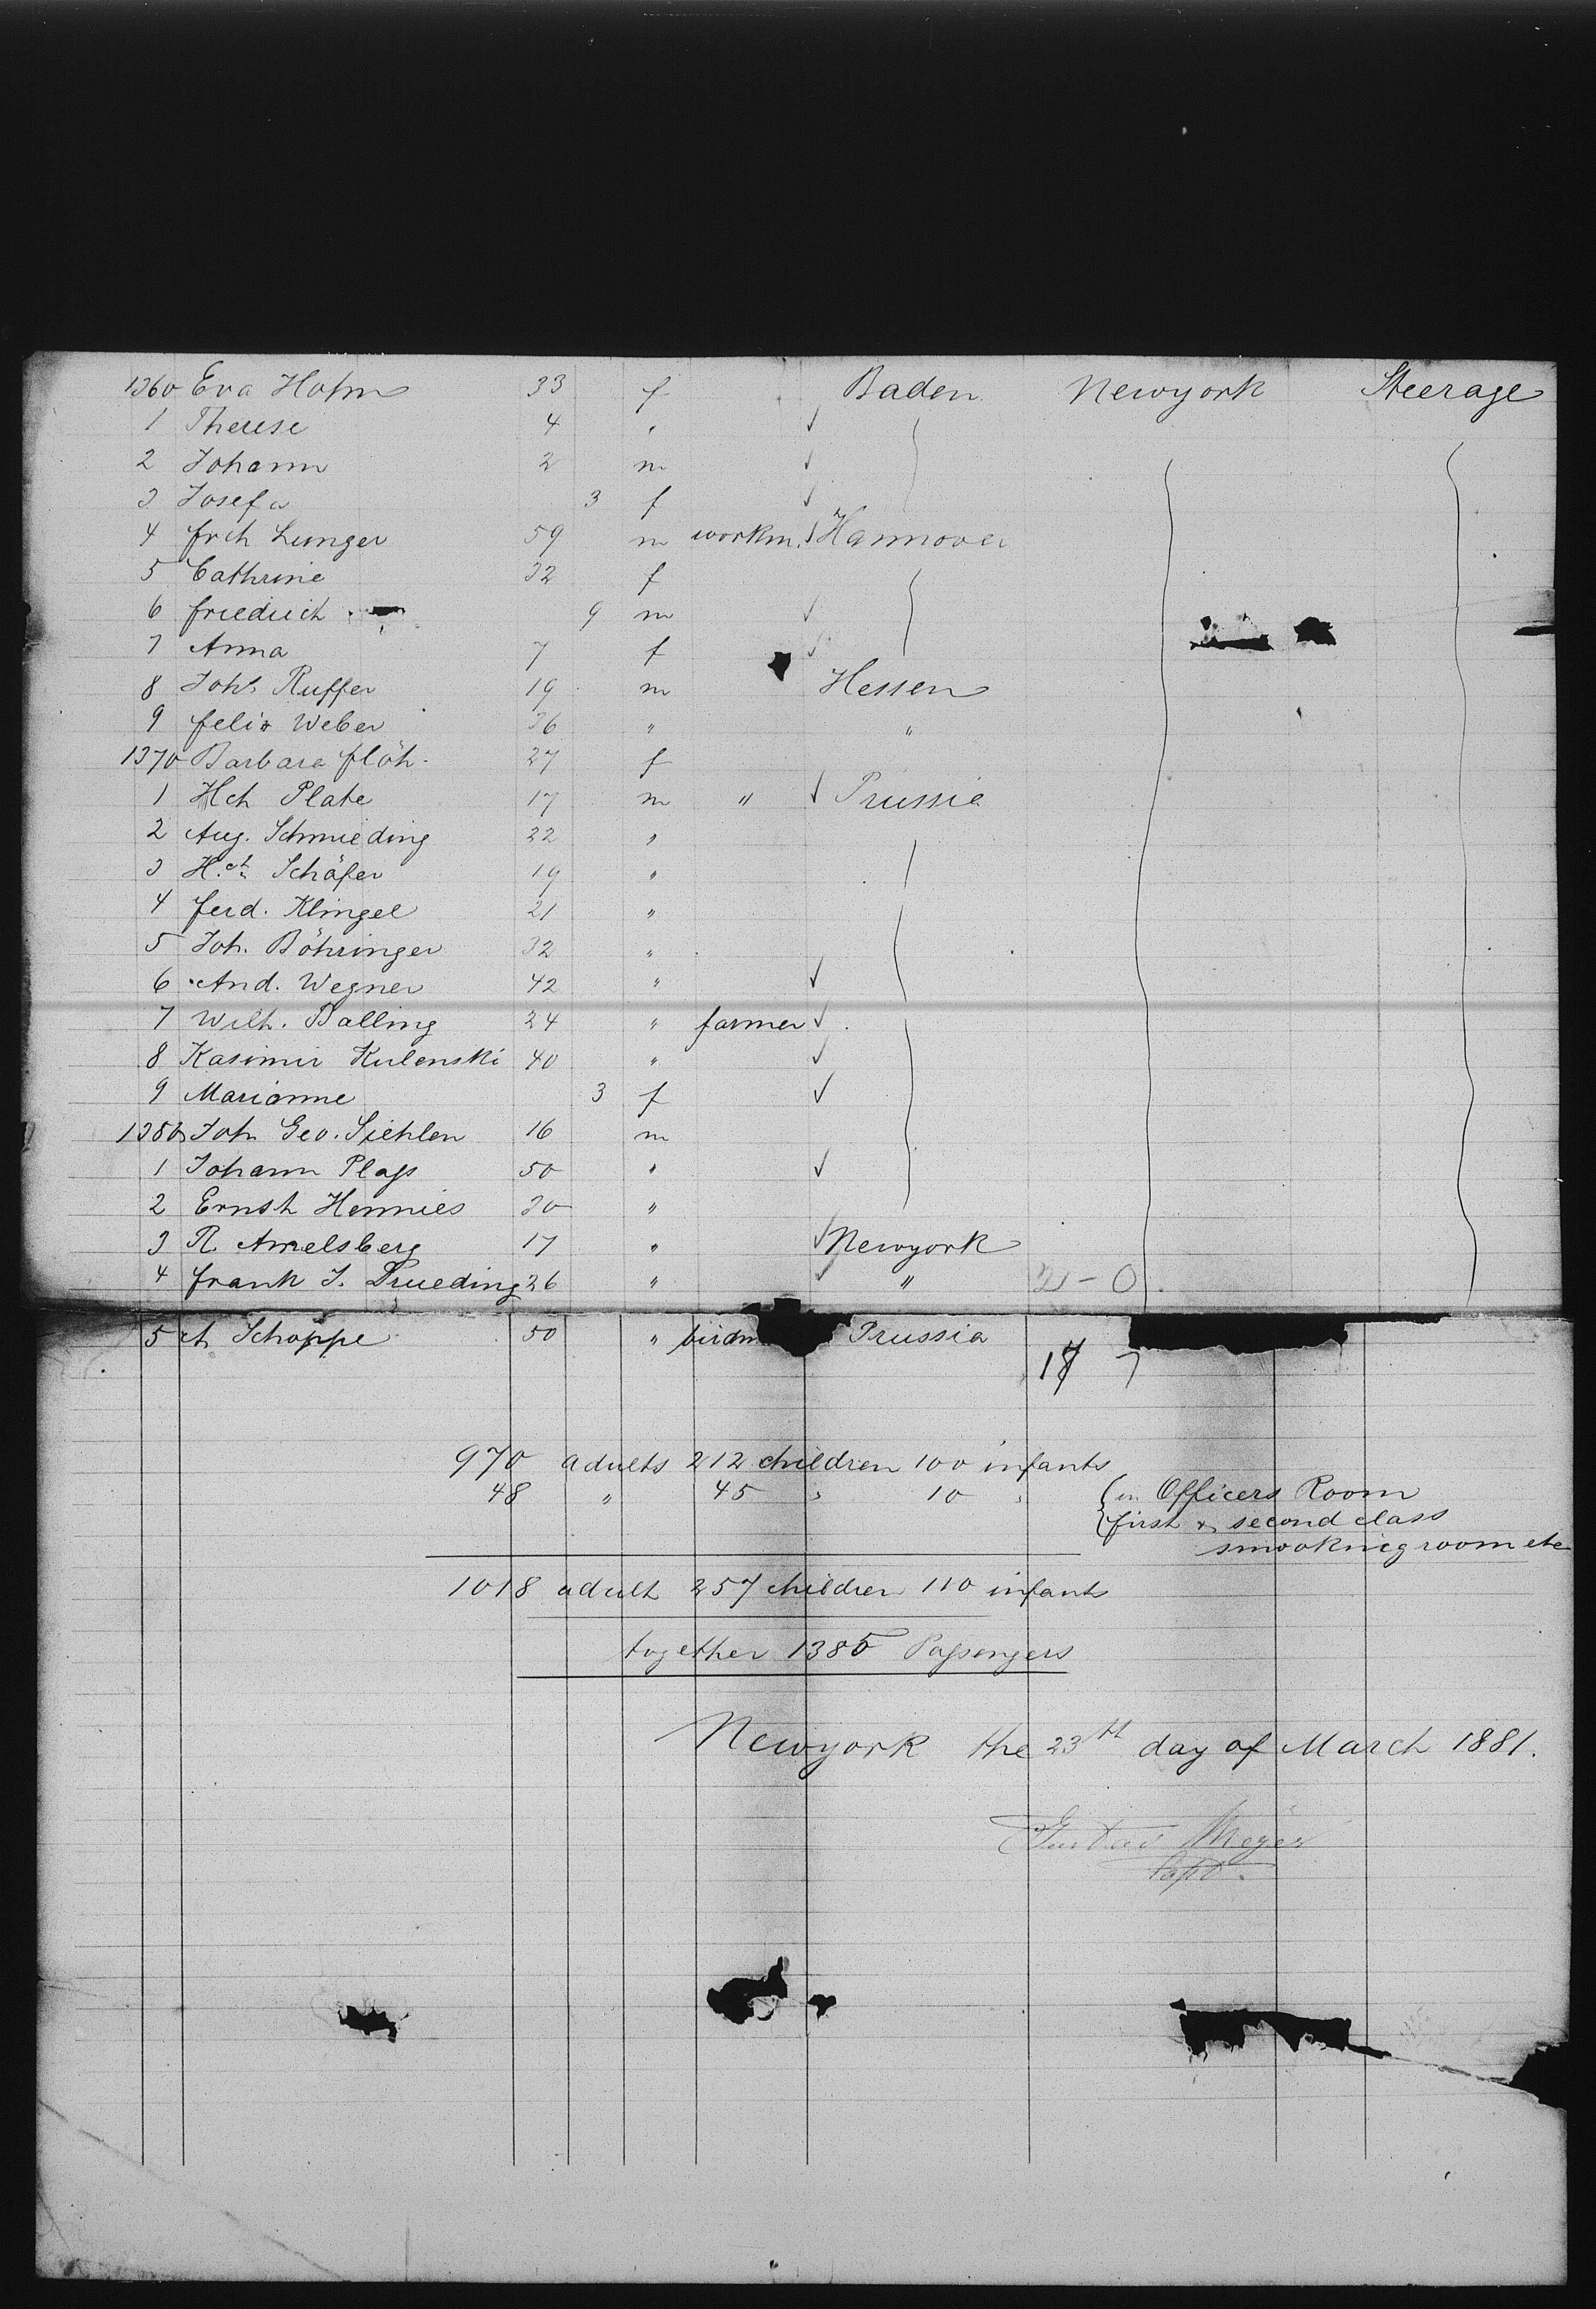 1360 Eva Hohm 33 f Baden Newyork Steerage
1 Therese 4 "
2 Johann 2 m
3 Josefa 3 f
4 Frch Lunger 59 m workm. Hannover
5 Cathrine 32 f
6 Friedrich 9 m
7 Anna 7 f
8 Johs Ruffer 19 m Hessen
9 Felix Weber 36 " "
1370 Barbara Flöh 27 f
1 Hch Plate 17 m " Prussia
2 Aug. Schmieding 22 "
3 H.ch Schäfer 19 "
4 Ferd. Klingel 21 "
5 Joh. Böhringer 32 "
6 And. Wegner 42 "
7 Wilh. Balling 24 " farmer
8 Kasimir Kulenski 40 "
9 Marianne 3 f
1380 Joh Geo. Siehlen 16 m
1 Johann Plags 50 "
2 Ernst Hennies 30 "
3 R. Amelsberg 17 " Newyork
4 Frank J. Drueding 26 " "
5 ch Schoppe 50 " birdm Prussia
17
970 adults 212 children 100 infants
48 " 45 " 10 " in Officers Room
first & second class
smooking room etc
1018 adult 257 children 110 infants
together 1385 Passengers
Newyork the 23th day of March 1881.
Gustav Meyer
Capt.